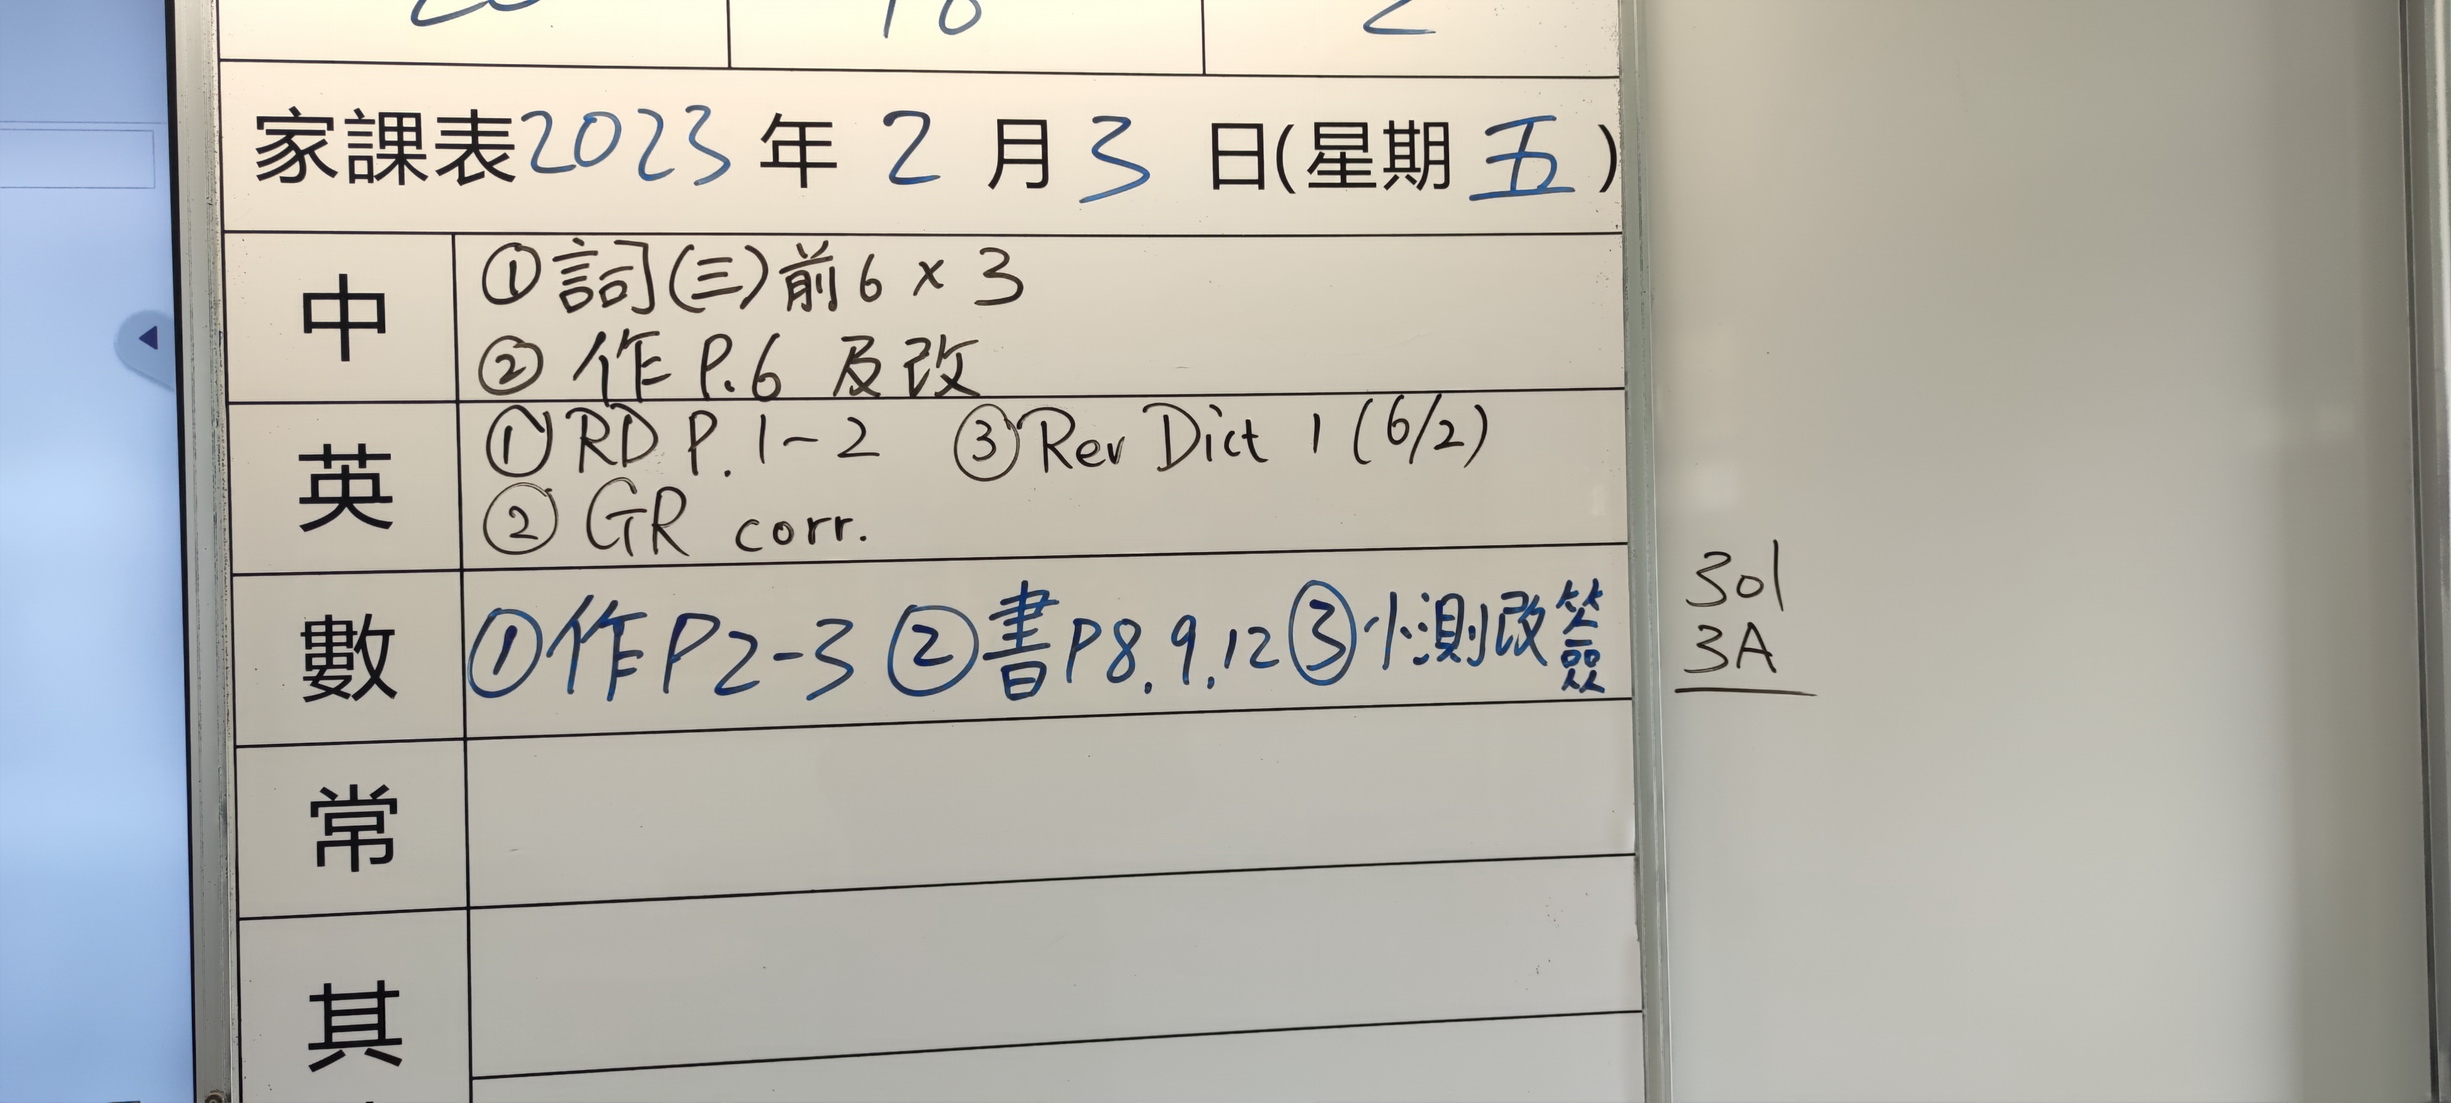 家課表2023年2月3日(星期五)
中
①詞(三)前6×3
②作P.6及改
英
①RD P.1-2 ③Rev Dict 1 (6/2)
②GR corr.
數
①作P2-3②書P8.9.12③小測改簽
常
其
301
3A